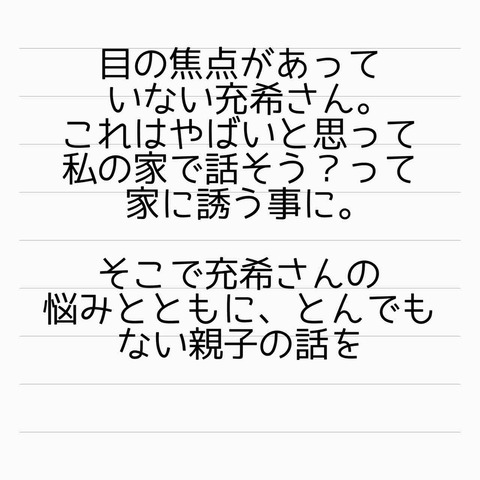 目の焦点があって
いない充希さん。
これはやばいと思って
私の家で話そう？って
家に誘う事に。
そこで充希さんの
悩みとともに、とんでも
ない親子の話を